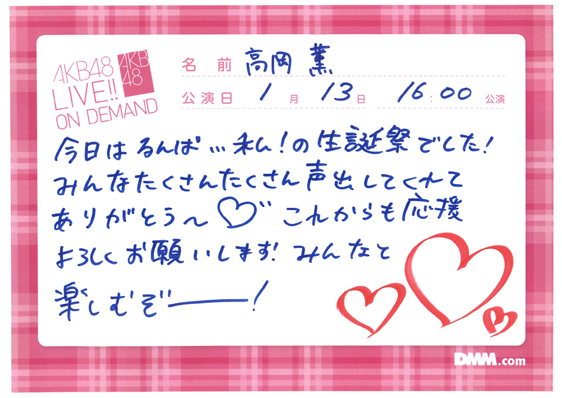 AKB48
LIVE!!
ON DEMAND
AKB
48
名 前 高岡 薫
公演日 1 月 13 日 16:00 公演
今日は るんぱ…私!の生誕祭でした!
みんなたくさんたくさん声出してくれて
ありがとう〜♡ これからも応援
よろしくお願いします! みんなと
楽しむぞー!
DMM.com